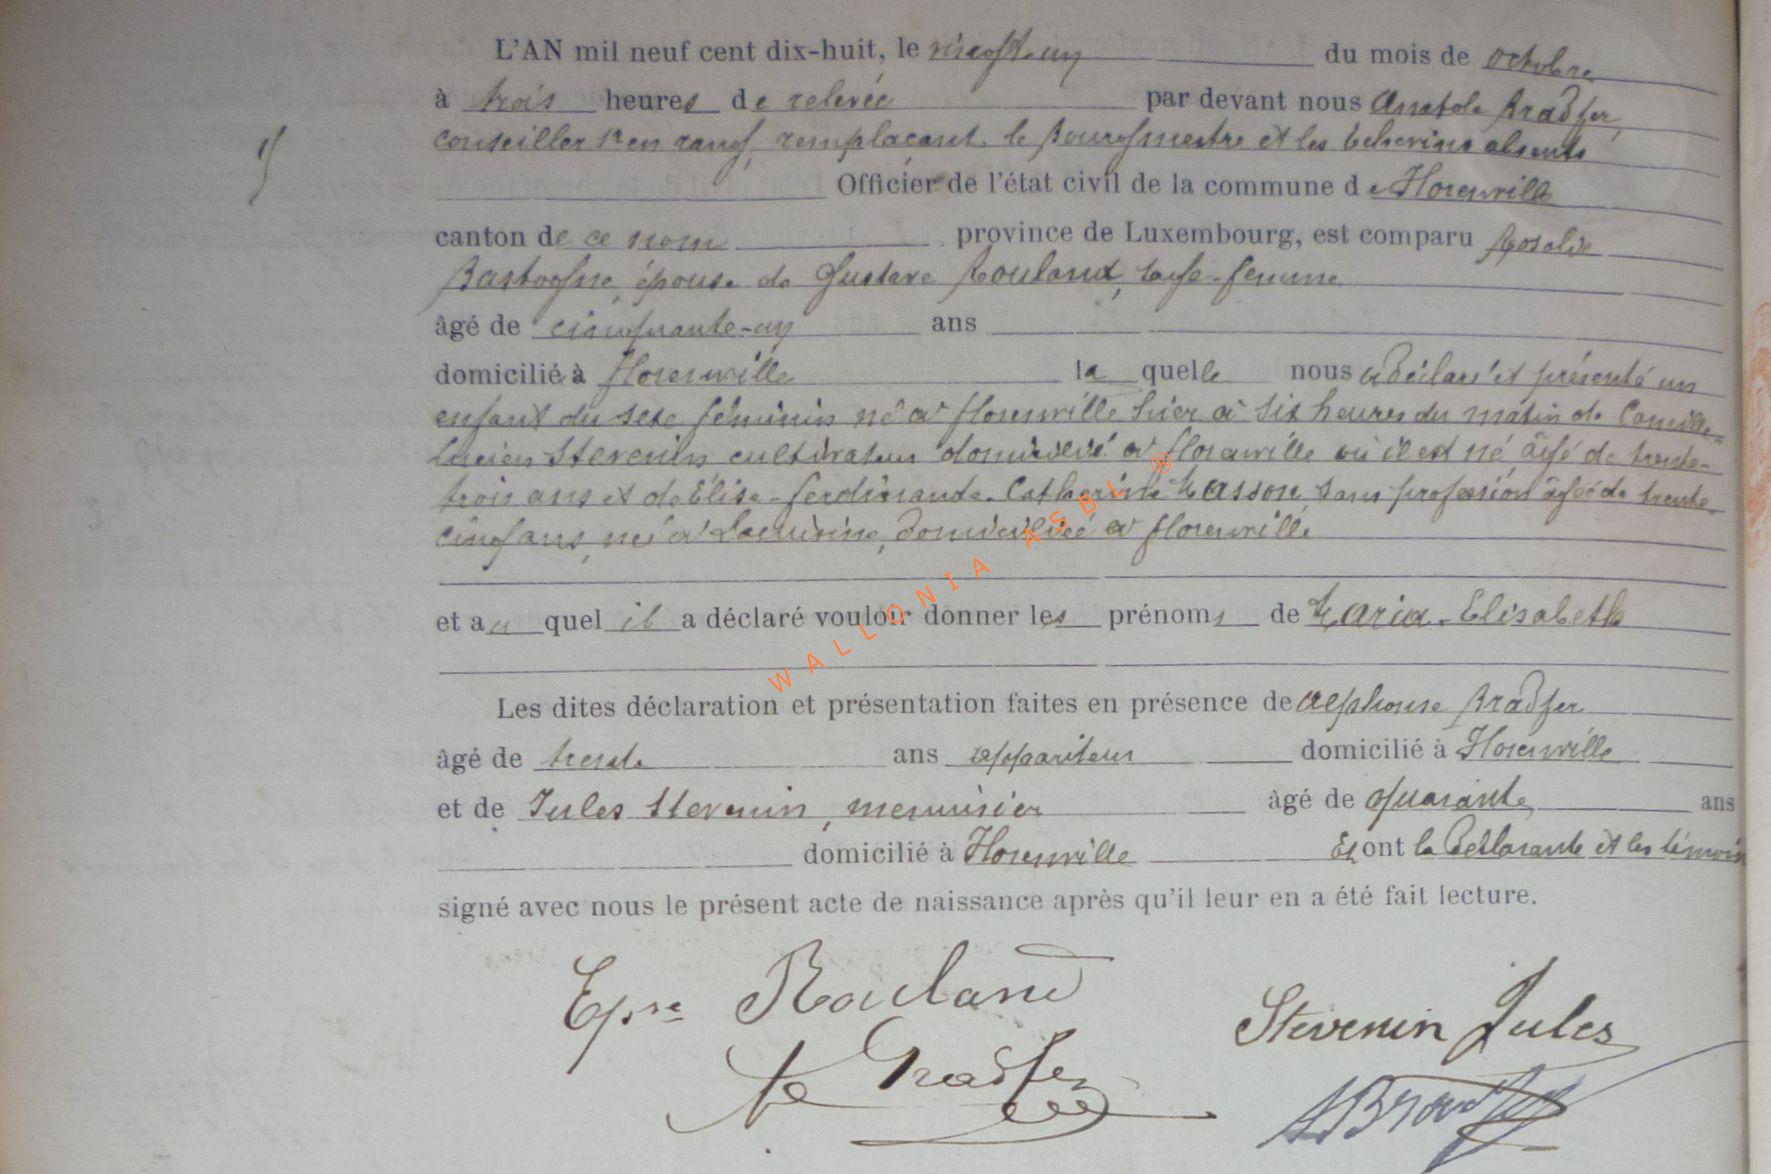 L'AN mil neuf cent dix-huit, le vingt-un du mois de octobre
à trois heures de relevée par devant nous Anatole Bradfer,
conseiller 1er en rang, remplaçant le Bourgmestre et les Echevins absents
Officier de l'état civil de la commune de Florenville
canton de ce nom province de Luxembourg, est comparu Rosalie
Bastogne, épouse de Gustave Rouland, sage-femme
âgé de cinquante-un ans
domicilié à Florenville laquelle nous a déclaré et présenté un
enfant du sexe féminin né à Florenville hier à six heures du matin de Camille-
Lucien Stevenin cultivateur domicilié à Florenville où il est né, âgé de trente-
trois ans et de Elise-Ferdinande-Catherine Masson sans profession âgée de trente-
cinq ans, née à Lacuisine, domiciliée à Florenville
et auquel il a déclaré vouloir donner les prénoms de Maria-Elisabeth
Les dites déclaration et présentation faites en présence de Alphonse Bradfer
âgé de trente ans appariteur domicilié à Florenville
et de Jules Stevenin, menuisier âgé de quarante ans
domicilié à Florenville Et ont la déclarante et les témoins
signé avec nous le présent acte de naissance après qu'il leur en a été fait lecture.
Epse Rouland
Stevenin Jules
Bradfer
ABradfer
WALLONIA ASBL ®